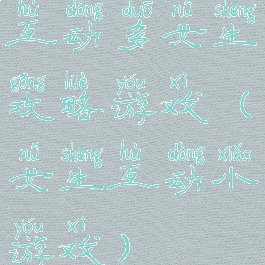 hù dòng duō nǚ shēng
互动多女生
gōng lüè yóu xì
攻略游戏（
nǚ shēng hù dòng xiǎo
女生互动小
yóu xì
游戏）